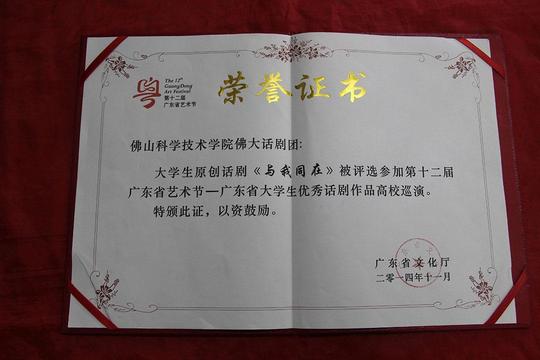 The 12th
GuangDong
Art Festival
第十二届
广东省艺术节
荣誉证书
佛山科学技术学院佛大话剧团：
大学生原创话剧《与我同在》被评选参加第十二届
广东省艺术节—广东省大学生优秀话剧作品高校巡演。
特颁此证，以资鼓励。
广东省文化厅
二零一四年十一月